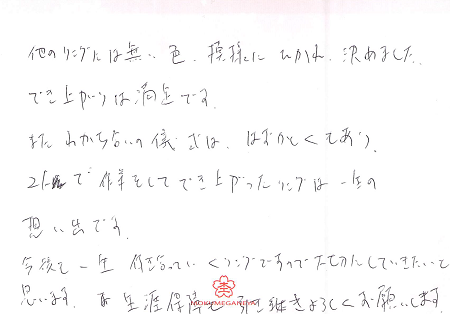 他のリングには無い色、模様にひかれ、決めました。
でき上がりは満足です。
また わかち合いの儀式は、はずかしくてあり、
2人で作業をしてでき上がったリングは一生の
思い出です。
今後も一生付き合っていくリングですので大切にしていきたいと
思います。 生涯保障も引き継きよろしくお願いします。
MOKUMEGANEYA